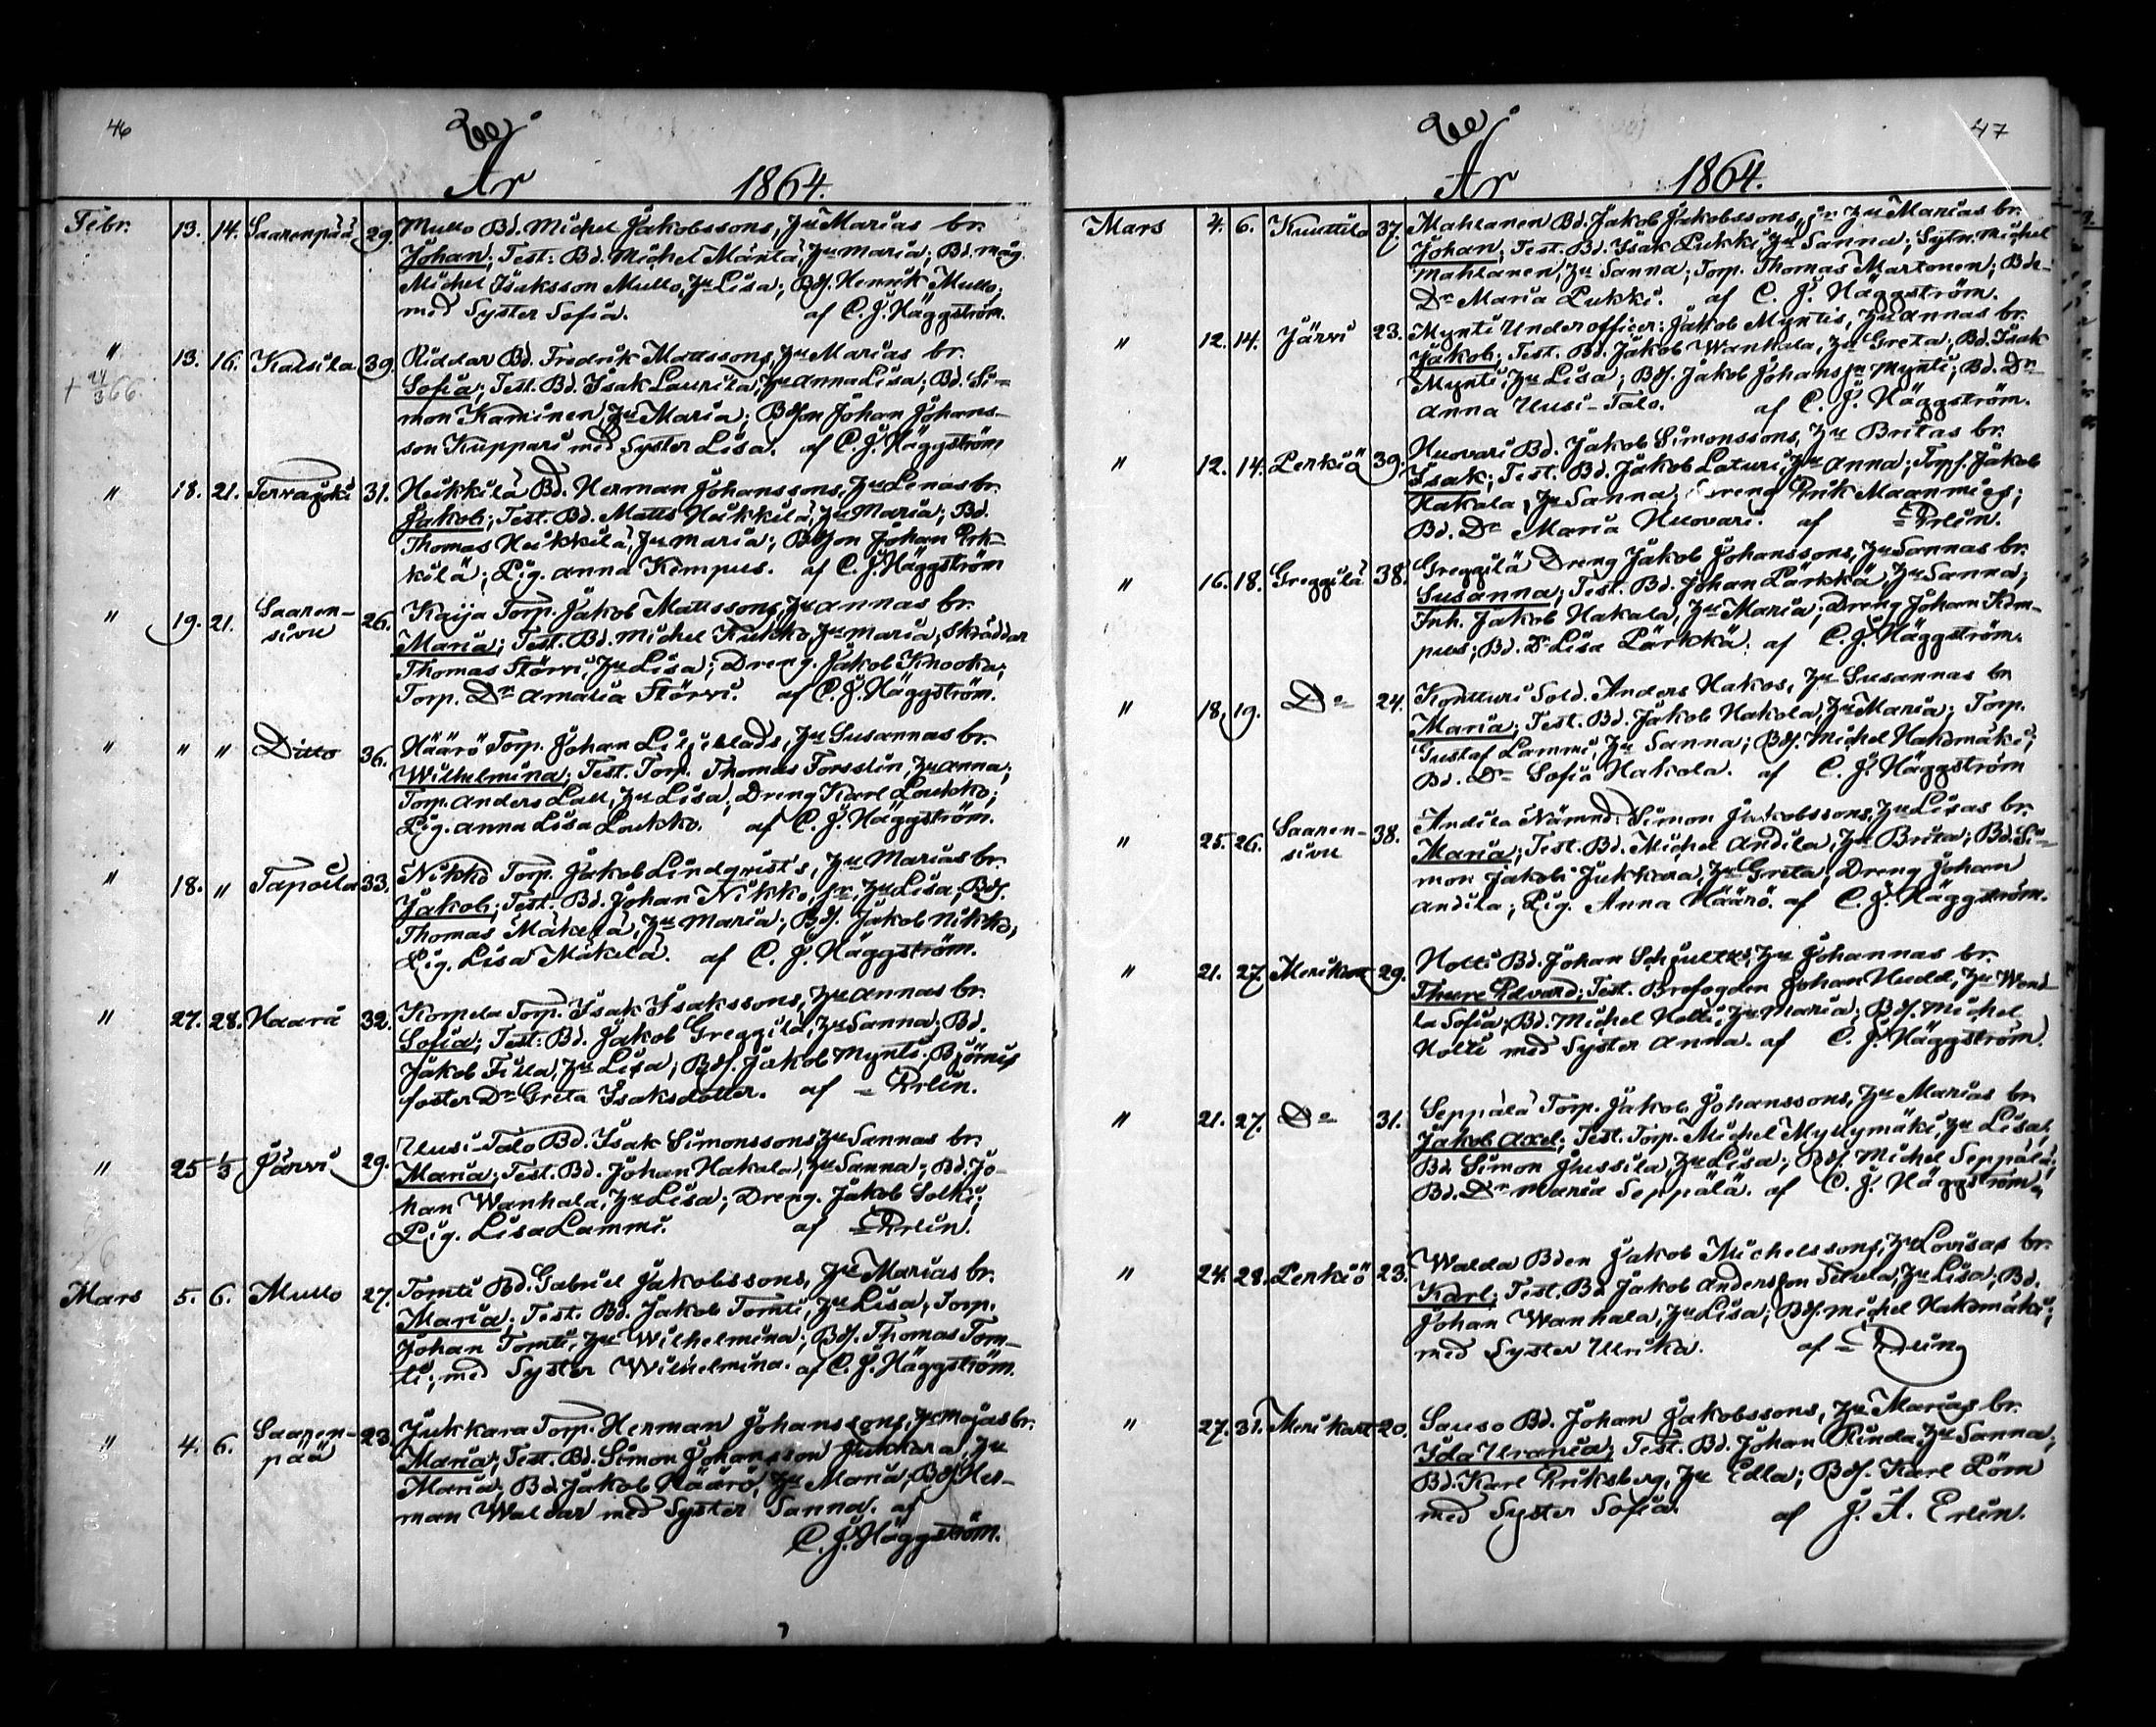 46
År 1864.
Febr. 13. 14. Saarenpää 29. Mullo Bd. Michel Jakobssons, Hu Marias br.
Johan; Test: Bd. Michel Märita, Hu Maria; Bd. måg
Michel Isaksson Mullo, Hu Lisa; Bdf. Henrik Mullo;
med Syster Sofia. af C. J. Häggström.
" 13. 16. Katsila 39. Riddar Bd. Fredrik Mattssons, Hu Marias br.
† 24/3 66. Sofia; Test. Bd. Isak Laurila, Hu Anna Lisa; Bd. Si=
mon Kaminen, Hu Maria; Bdson Johan Johans-
son Kuppari med Syster Lisa. af C. J. Häggström
" 18. 21. Tervajoki 31. Heikkilä Bd. Herman Johanssons, Hu Lenas br.
Jakob; Test. Bd. Matts Heikkilä, Hu Maria; Bd.
Thomas Heikkilä, Hu Maria; Bdson Johan Erk-
kilä; Pig. Anna Kempus. af C. J. Häggström
" 19. 21. Saaren-
sivu 26. Kaija Torp. Jakob Mattssons, Hu Annas br.
Maria; Test. Bd. Michel Kukko, Hu Maria; Skräddar
Thomas Störvi, Hu Lisa; Dreng. Jakob Knooka;
Torp. Dr Amalia Störvi. af C. J. Häggström.
" " " Ditto 36. Häärö Torp. Johan Liljeblads, Hu Susannas br.
Wilhelmina; Test. Torp. Thomas Forsslin, Hu Anna;
Torp. Anders Lall, Hu Lisa, Dreng Karl Loukko;
Pig. Anna Lisa Loukko. af C. J. Häggström.
" 18. " Tapoila 33. Nikko Torp. Jakob Lindqvist's, Hu Marias br.
Jakob; Test. Bd. Johan Nikko, jr. Hu Lisa; Bdf.
Thomas Mäkelä, Hu Maria; Bdf. Jakob Nikko;
Pig. Lisa Mäkelä. af C. J. Häggström.
" 27. 28. Haarä 32. Korpela Torp. Isak Isakssons, Hu Annas br.
Sofia; Test: Bd. Jakob Greggilä, Hu Sanna; Bd.
Jakob Filla, Hu Lisa; Bdf. Jakob Mynti; Björnis
foster Dr Greta Isaksdotter. af = Erlin.
" 25 1/3 Järvi 29. Uusi-Talo Bd. Isak Simonssons Hu Sannas br.
Maria; Test. Bd. Johan Hakala, Hu Sanna; Bd. Jo-
han Wanhala, Hu Lisa; Dreng. Jakob Solki;
Pig. Lisa Lammi. af = Erlin.
Mars 5. 6. Mullo 27. Tomti Bd. Gabriel Jakobssons, Hu Marias br.
Maria; Test. Bd. Jakob Tomti, Hu Lisa, Torp.
Johan Tomti, Hu Wilhelmina; Bdf. Thomas Tom-
ti; med Syster Wilhelmina. af C. J. Häggström.
" 4. 6. Saaren-
pää 23. Jukkara Torp. Herman Johanssons, Hu Majas br.
Maria; Test. Bd. Simon Johansson Jukkara, Hu
Maria; Bd. Jakob Häärö, Hu Maria; Bdf. Her-
man Waldar med Syster Sanna. af
C. J. Häggström.
47
År 1864.
Mars 4. 6. Knuttila 37. Mahlanen Bd. Jakob Jakobssons, jr. Hu Marias br.
Johan; Test. Bd. Isak Pukki, Hu Sanna; Sytn. Michel
Mahlanen, Hu Sanna; Torp. Thomas Martonen; Bde-
Dr Maria Pukki. af C. J. Häggström.
" 12. 14. Järvi 23. Mynti Underofficer: Jakob Myntis, Hu Annas br.
Jakob; Test. Bd. Jakob Wanhala, Hu Greta; Bd. Isak
Mynti, Hu Lisa; Bdf. Jakob Johansson Mynti; Bd. Dr
Anna Uusi-Talo. af C. J. Häggström.
" 12. 14. Perkiö 39. Huovari Bd. Jakob Simonssons, Hu Britas br.
Isak; Test. Bd. Jakob Laturi, Hu Anna; Torpf. Jakob
Hakala, Hu Sanna; Dreng Erik Maanmies;
Bd. Dr Maria Huovari. af = Erlin.
" 16. 18. Greggilä 38. Greggilä Dreng Jakob Johanssons, Hu Sannas br.
Susanna; Test. Bd. Johan Pärkkä, Hu Sanna;
Inh. Jakob Hakala, Hu Maria; Dreng Johan Kem-
pus; Bd. Dr Lisa Pärkkä. af C. J. Häggström.
" 18. 19. Do 24. Kontturi Sold. Anders Hakos, Hu Susannas br
Maria; Test. Bd. Jakob Hakola, Hu Maria; Torp.
Gustaf Lammi, Hu Sanna; Bdf. Michel Hakomäki;
Bd. Dr Sofia Hakola. af C. J. Häggström
" 25. 26. Saaren-
sivu 38. Andila Nämnd. Simon Jakobssons, Hu Lisas br.
Maria; Test. Bd. Michel Andila, Hu Brita; Bd. Si=
mon Jakobs. Jukkara, Hu Greta; Dreng Johan
Andila; Pig. Anna Häärö. af C. J. Häggström.
" 21. 27. Merikart 29. Holti Bd. Johan Schultzs, Hu Johannas br.
Thure Edvard; Test. Brofogden Johan Hudd, Hu Wend-
la Sofia; Bd. Michel Holti, Hu Maria; Bdf. Michel
Holti med Syster Anna. af C. J. Häggström.
" 21. 27. Do 31. Seppälä Torp. Jakob Johanssons, Hu Marias br.
Jakob Axel; Test. Torp. Michel Myllymäki, Hu Lisa;
Bd. Simon Jussila, Hu Lisa; Bdf. Michel Seppälä;
Bd. Dr Maria Seppälä. af C. J. Häggström.
" 24. 28. Perkiö 23. Walda Bden Jakob Michelssons, Hu Lovisas br.
Karl; Test. Bd. Jakob Andersson Tilula, Hu Lisa; Bd.
Johan Wanhala, Hu Lisa; Bdf. Michel Hakomäki;
med Syster Ulrika. af = Erlin
" 27. 31. Merikart 20. Sauso Bd. Johan Jakobssons, Hu Marias br.
Ida Urania; Test. Bd. Johan Rinda, Hu Sanna;
Bd. Karl Eriksberg, Hu Edla; Bdf. Karl Pörn
med Syster Sofia. af J. A. Erlin.